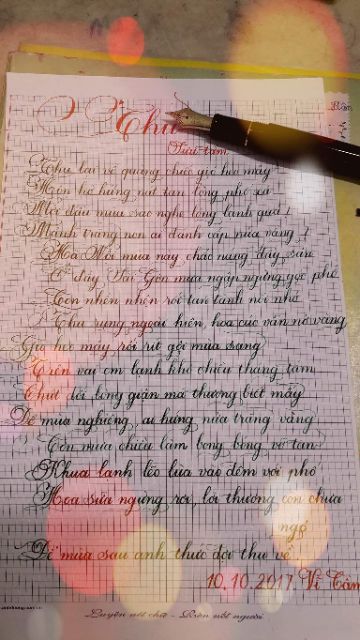 Thu
Tiểu tam
Thu lại về quàng chiếc gió heo may
Môn hờ hững nút tan lòng phố xá
Mới đầu mùa sao nghe lòng lạnh quá!
Mảnh trăng non ai đánh cắp nửa vàng!
Hà Nội mùa này chắc nắng đầy sân
Ở đây Sài Gòn mưa ngập ngừng góc phố
Cơn nhẹn nhẹn rơi tan tành nỗi nhớ
Thu rụng ngoài hiên, hoa cúc vẫn nở vàng
Gió heo may rối rít gọi mùa sang
Trên vai em lạnh khô chiều tháng tám
Chút dỗi hờn giận mà thương biết mấy
Để mùa nghiêng, ai hứng nửa trăng vàng
Cơn mưa chiều làm bong bóng vỡ tan
Khuya lạnh lẽo lùa vào đêm với phố
Hoa sữa ngừng rơi, lời thương còn chưa
ngỏ
Để mùa sau anh thức đợi thu về
10.10.2017. Vi Cầm
Luyện nét chữ - Rèn nết người